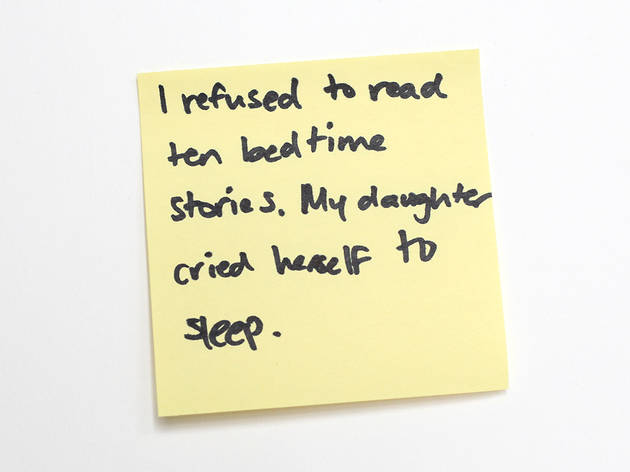 I refused to read
ten bedtime
stories. My daughter
cried herself to
sleep.